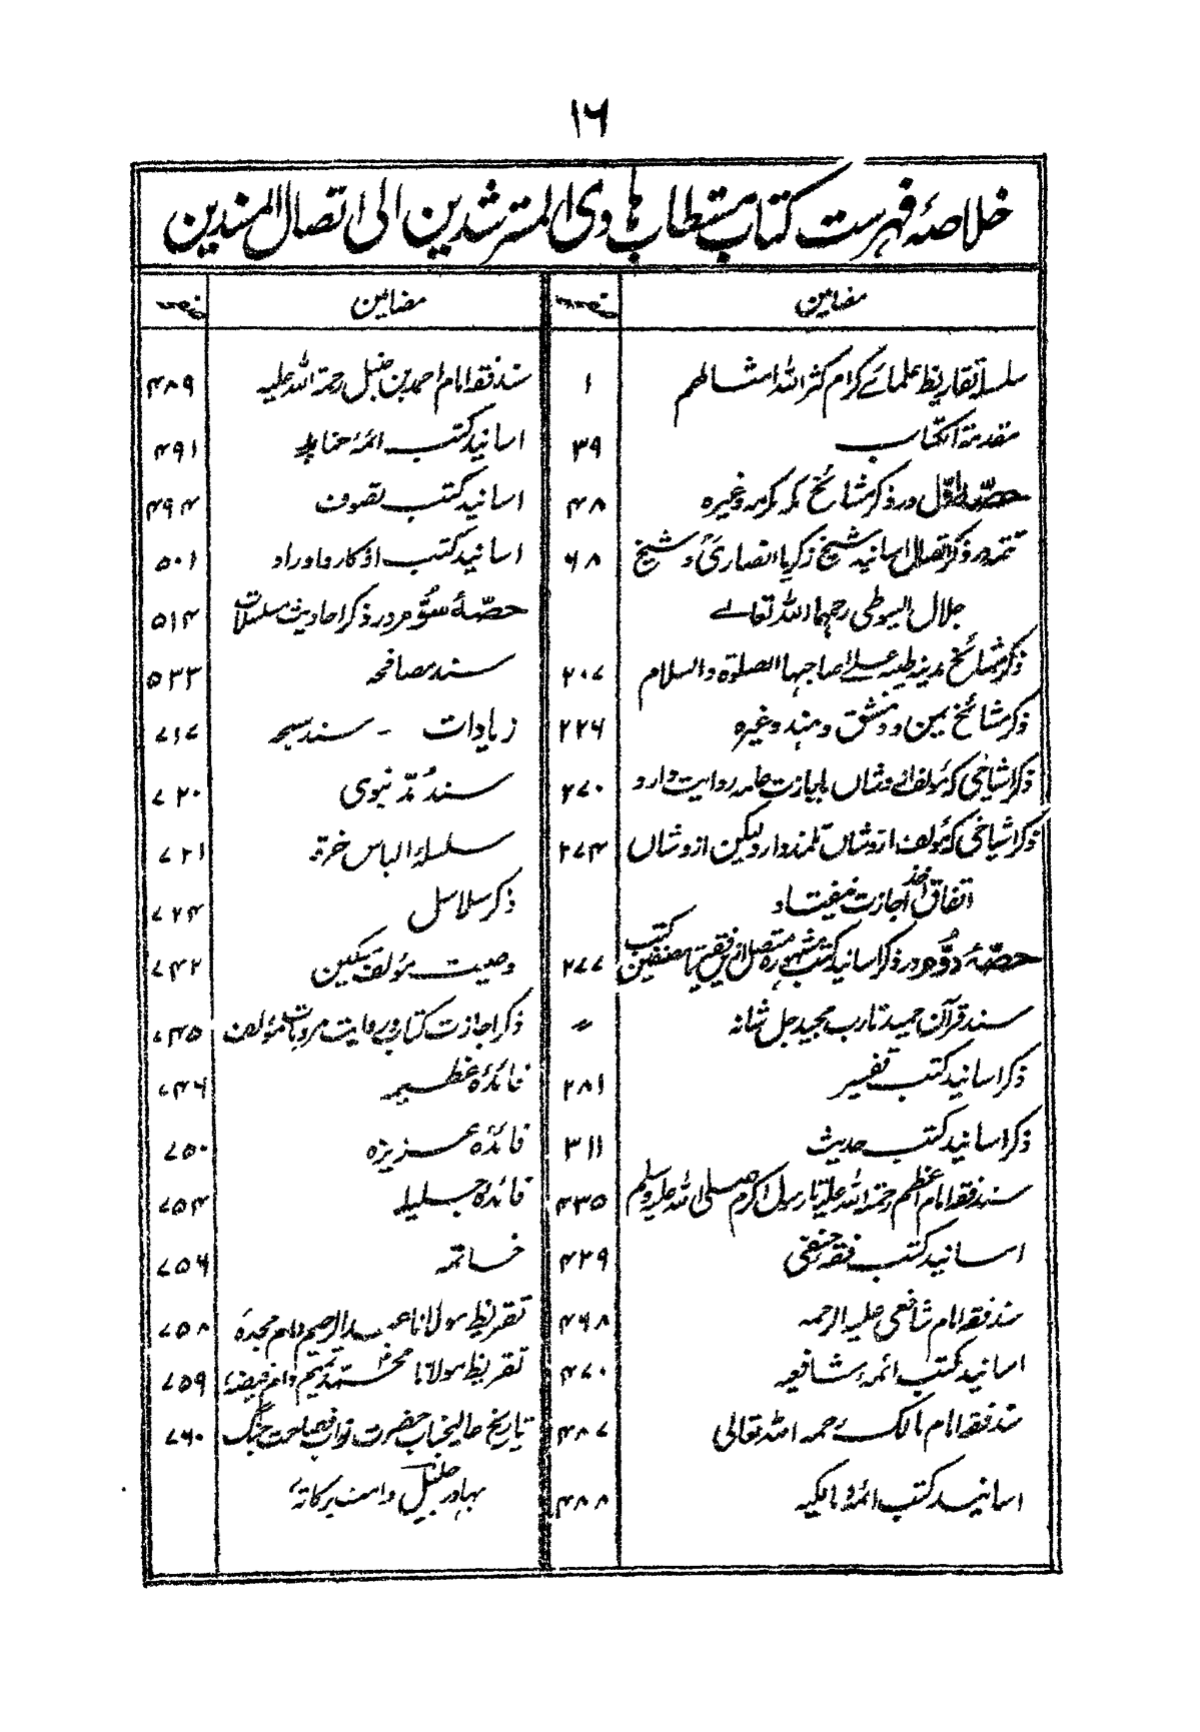 ۱۶
خلاصۂ فہرست کتاب مستطاب ہادی المسترشدین الی اتصال المسندین
مضامین صفحہ
سلسلۂ تقاریظ علمائے کرام کثر اللہ امثالهم ۱
مقدمۃ الکتاب ۳۹
حصّۂ اوّل در ذکر مشائخ مکہ مکرمہ وغیرہ ۴۸
تتمہ در ذکر اتصال اسانید شیخ زکریا انصاریؒ و شیخ ۶۸
جلال السیوطی رحمہما اللہ تعالے
ذکر مشائخ مدینہ طیبہ علےٰ صاحبہا الصلوۃ والسلام ۲۰۷
ذکر مشائخ یمن و دمشق و ہند وغیرہ ۲۲۶
ذکر اشیاخی کہ مؤلف از وشاں باجازت عامہ روایت دارد ۲۷۰
ذکر اشیاخی کہ مؤلف از وشاں تلمذ دارد لیکن از وشاں ۲۷۴
اتفاق اخذ اجازت نیفتاد
حصّۂ دوّم در ذکر اسانید کتب مشہورہ متصل ازیں فقیر تا مصنفین کتب ۲۷۷
سند قرآن حمید تا رب مجید جل شانہ 〃
ذکر اسانید کتب تفسیر ۲۸۱
ذکر اسانید کتب حدیث ۳۱۱
سند فقہ امام اعظم رحمۃ اللہ علیہ تا رسول اکرم صلی اللہ علیہ وسلم ۴۳۵
اسانید کتب فقہ حنفی ۴۳۹
سند فقہ امام شافعی علیہ الرحمہ ۴۶۸
اسانید کتب ائمۂ شافعیہ ۴۷۰
سند فقہ امام مالک رحمہ اللہ تعالی ۴۸۷
اسانید کتب ائمۂ مالکیہ ۴۸۸
مضامین صفحہ
سند فقہ امام احمد بن حنبل رحمۃ اللہ علیہ ۴۸۹
اسانید کتب ائمۂ حنابلہ ۴۹۱
اسانید کتب تصوف ۴۹۴
اسانید کتب اذکار و اوراد ۵۰۱
حصّۂ سوّم در ذکر احادیث مسلسلات ۵۱۴
سند مصافحہ ۵۳۳
زیادات - سند سبحہ ۷۱۷
سند مُدّ نبوی ۷۲۰
سلسلۂ الباس خرقہ ۷۲۱
ذکر سلاسل ۷۲۴
وصیت مؤلف مسکین ۷۴۲
ذکر اجازت کتاب و روایت مرویات مؤلف ۷۴۵
فائدۂ عظیمہ ۷۴۶
فائدۂ عزیزہ ۷۵۰
فائدۂ جلیلہ ۷۵۴
خاتمہ ۷۵۶
تقریظ مولانا عبد الرحیم دام مجدہٗ ۷۵۸
تقریظ مولانا محمد ندیم دام فیضہٗ ۷۵۹
تاریخ عالیجناب حضرت نواب فصاحت جنگ ۷۶۰
بہادر جلیل دامت برکاتہٗ